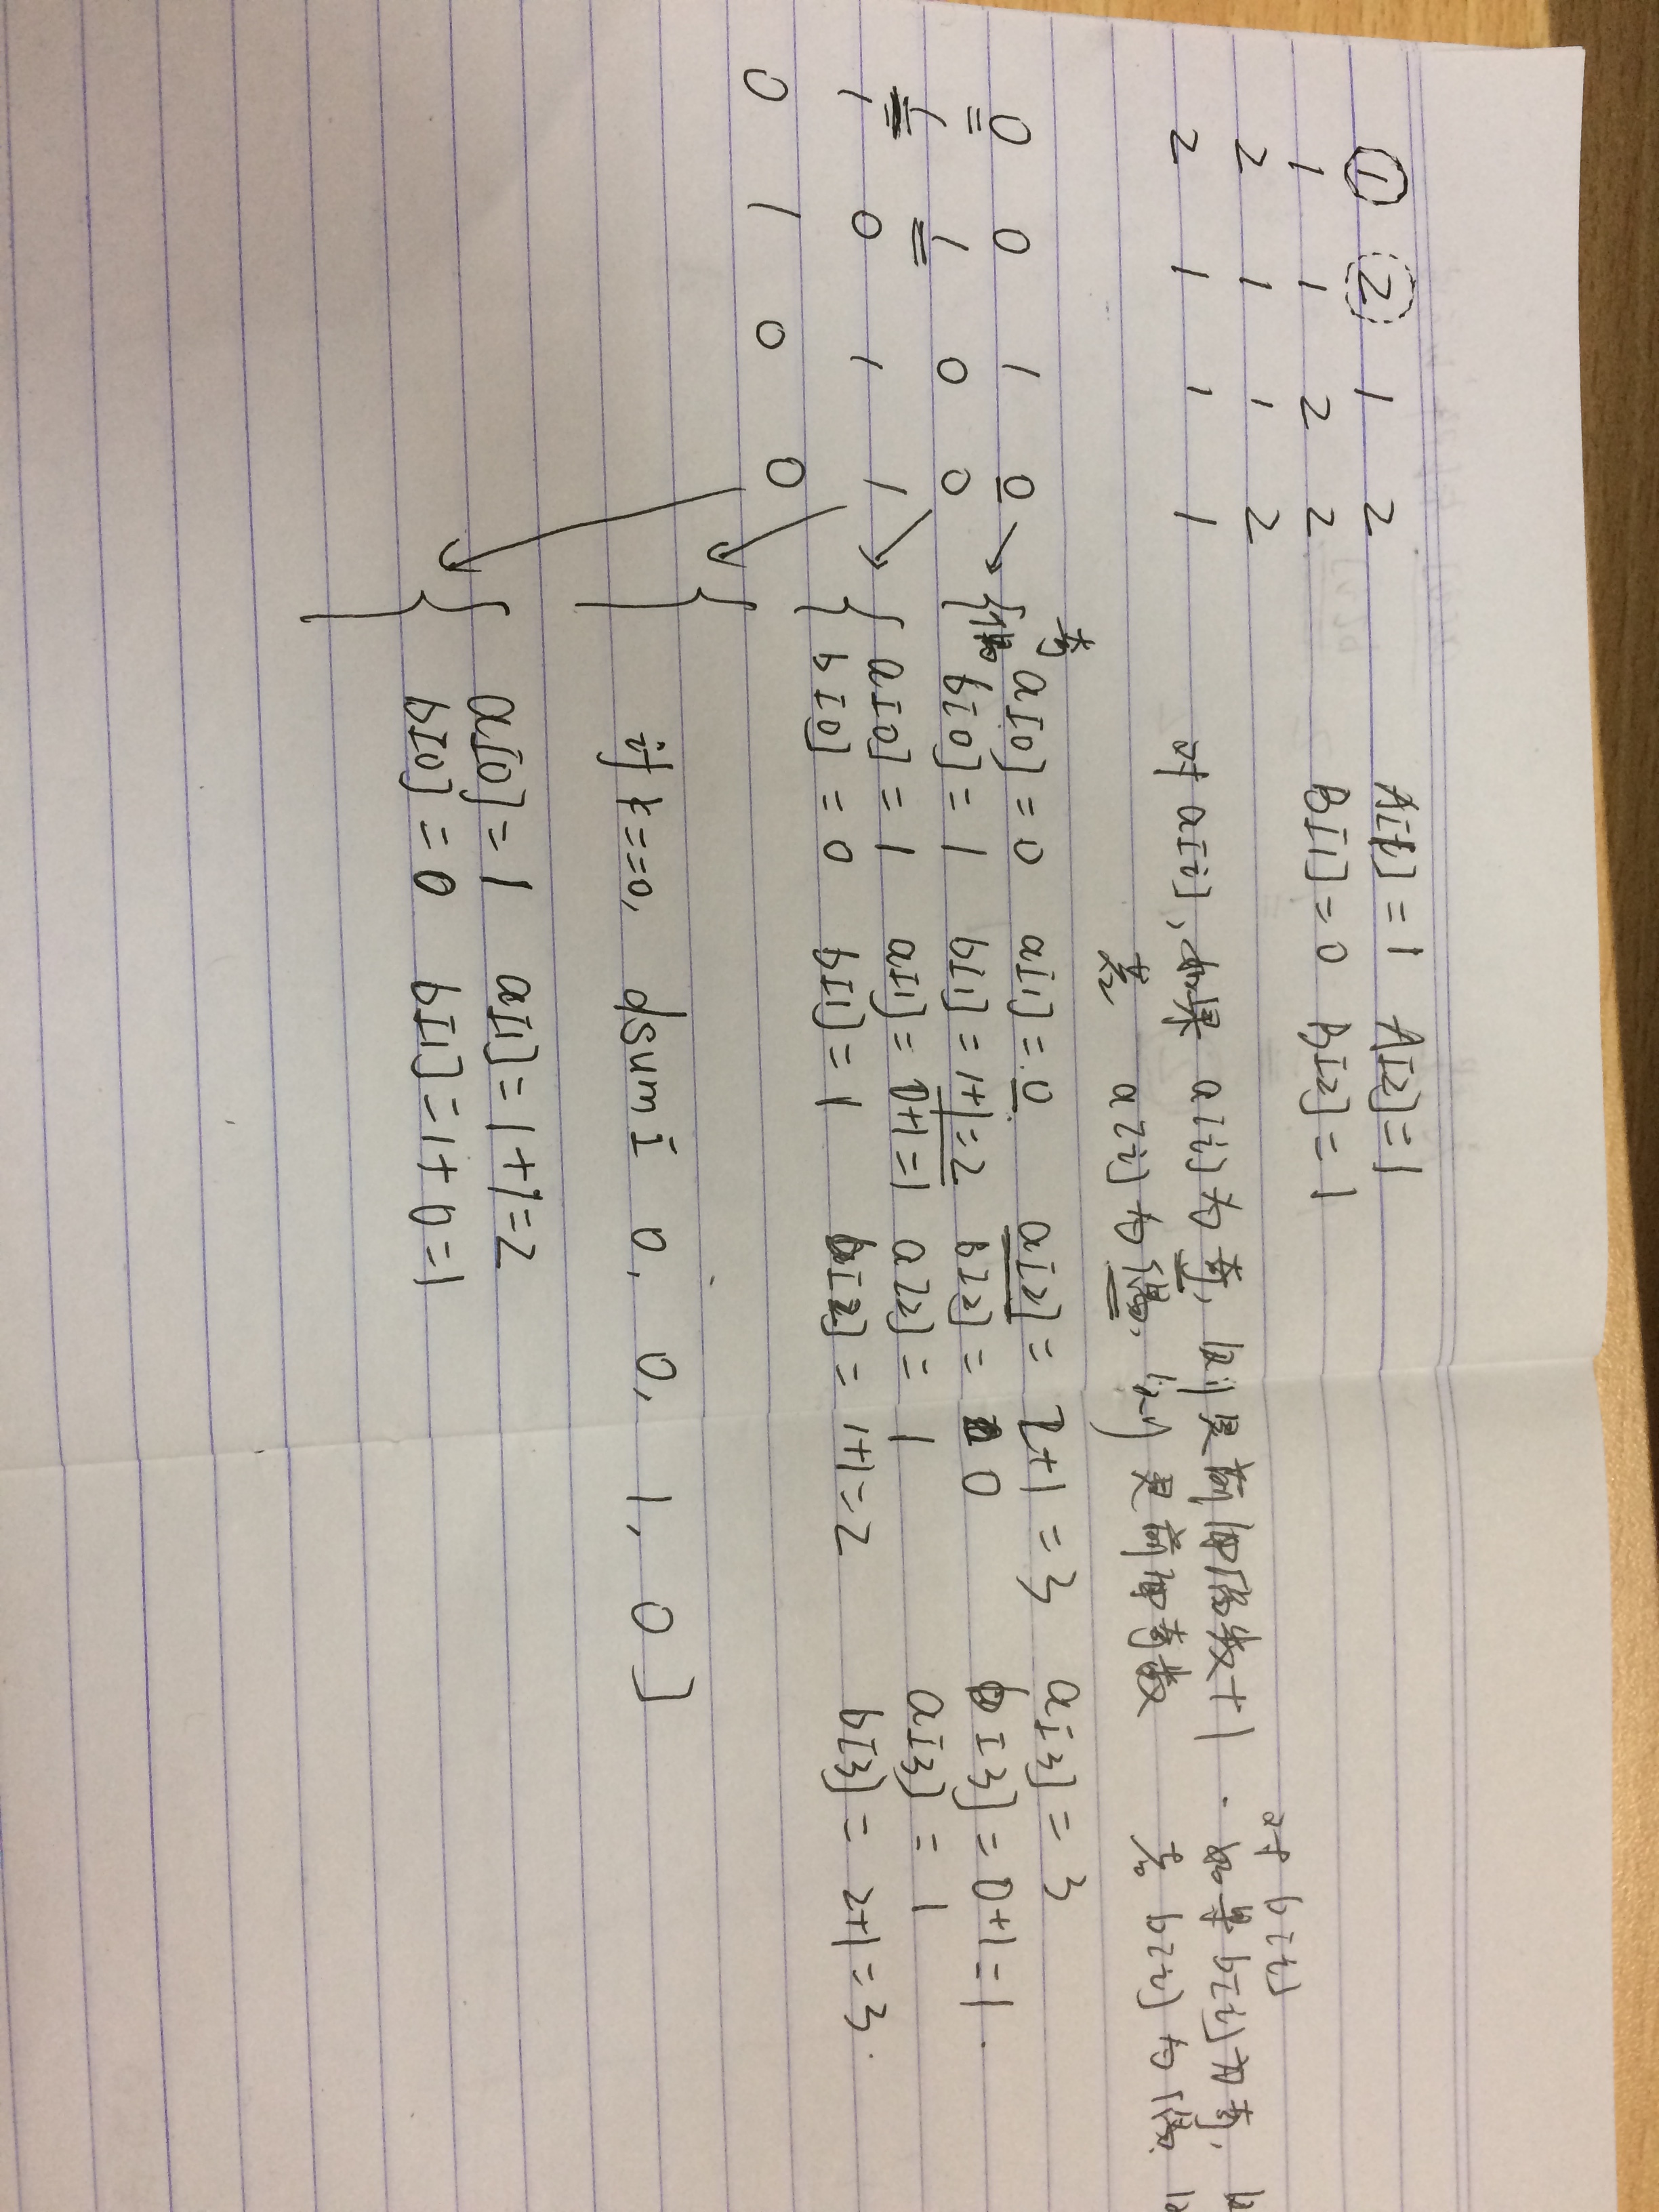 ① ② 1 2 A[1] = 1 A[2] = 1
1 1 2 2 B[1] = 0 B[2] = 1
2 1 1 2
2 1 1 1
对 b[i]
对 a[i], 如果 a[i] 为奇, 则是前面偶数+1. 如果 b[i] 为奇,
若 a[i] 为偶, 则是前面奇数 若 b[i] 为偶
奇
0 0 1 0 → { a[0] = 0 a[1] = 0 a[2] = 2+1 = 3 a[3] = 3
偶 b[0] = 1 b[1] = 1+1=2 b[2] = 0 b[3] = 0+1 = 1.
1 1 0 0 → { a[0] = 1 a[1] = 0+1=1 a[2] = 1 a[3] = 1
b[0] = 0 b[1] = 1 b[2] = 1+1=2 b[3] = 2+1=3.
1 0 1 1
0 1 0 0
if k==0, dsum[ 0, 0, 1, 0 ]
{ a[0] = 1 a[1] = 1+1=2
b[0] = 0 b[1] = 1+0=1